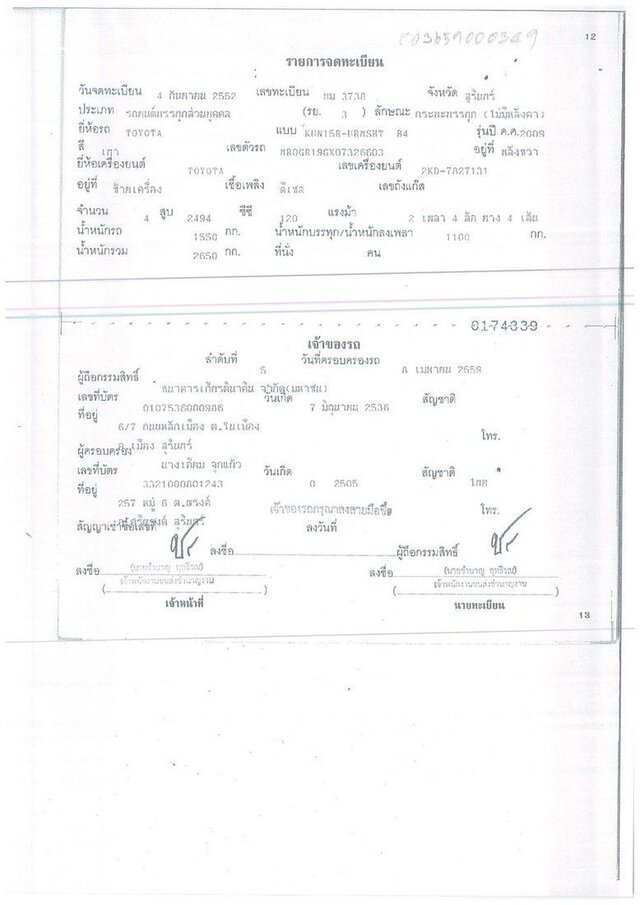 003659000349
12
รายการจดทะเบียน
วันจดทะเบียน 4 กันยายน 2552 เลขทะเบียน 3738 จังหวัด สุรินทร์
ประเภท รถยนต์บรรทุกส่วนบุคคล (รย. 3 ) ลักษณะ กระบะบรรทุก (ไม่มีหลังคา)
ยี่ห้อรถ TOYOTA แบบ KUN15R-URMSHT B4 รุ่นปี ค.ศ.2009
สี เทา เลขตัวรถ MR0GR19GX07326603 อยู่ที่ หลังขวา
ยี่ห้อเครื่องยนต์ TOYOTA เลขเครื่องยนต์ 2KD-7827131
อยู่ที่ ซ้ายเครื่อง เชื้อเพลิง ดีเซล เลขถังแก๊ส
จำนวน 4 สูบ 2494 ซีซี 120 แรงม้า 2 เพลา 4 ล้อ ยาง 4 เส้น
น้ำหนักรถ 1550 กก. น้ำหนักบรรทุก/น้ำหนักลงเพลา 1100 กก.
น้ำหนักรวม 2650 กก. ที่นั่ง คน
0174339
เจ้าของรถ
ลำดับที่ 5 วันที่ครอบครองรถ 8 เมษายน 2559
ผู้ถือกรรมสิทธิ์ ธนาคารเกียรตินาคิน จำกัด(มหาชน)
เลขที่บัตร 0107536000986 วันเกิด 7 มิถุนายน 2536 สัญชาติ
ที่อยู่ 6/7 ถนนหลักเมือง ต.ในเมือง
อ.เมือง สุรินทร์ โทร.
ผู้ครอบครอง นางเกียม จุกแก้ว
เลขที่บัตร 3321000801243 วันเกิด 0 2505 สัญชาติ ไทย
ที่อยู่ 257 หมู่ 6 ต.ตรวจ
อ.ศรีณรงค์ สุรินทร์ เจ้าของรถกรุณาลงลายมือชื่อ โทร.
สัญญาเช่าซื้อเลขที่ ลงวันที่
ลงชื่อ ผู้ถือกรรมสิทธิ์
ลงชื่อ (นายชำนาญ) ลงชื่อ (นายชำนาญ)
เจ้าพนักงานขนส่งชำนาญงาน เจ้าพนักงานขนส่งชำนาญงาน
เจ้าหน้าที่ นายทะเบียน
13